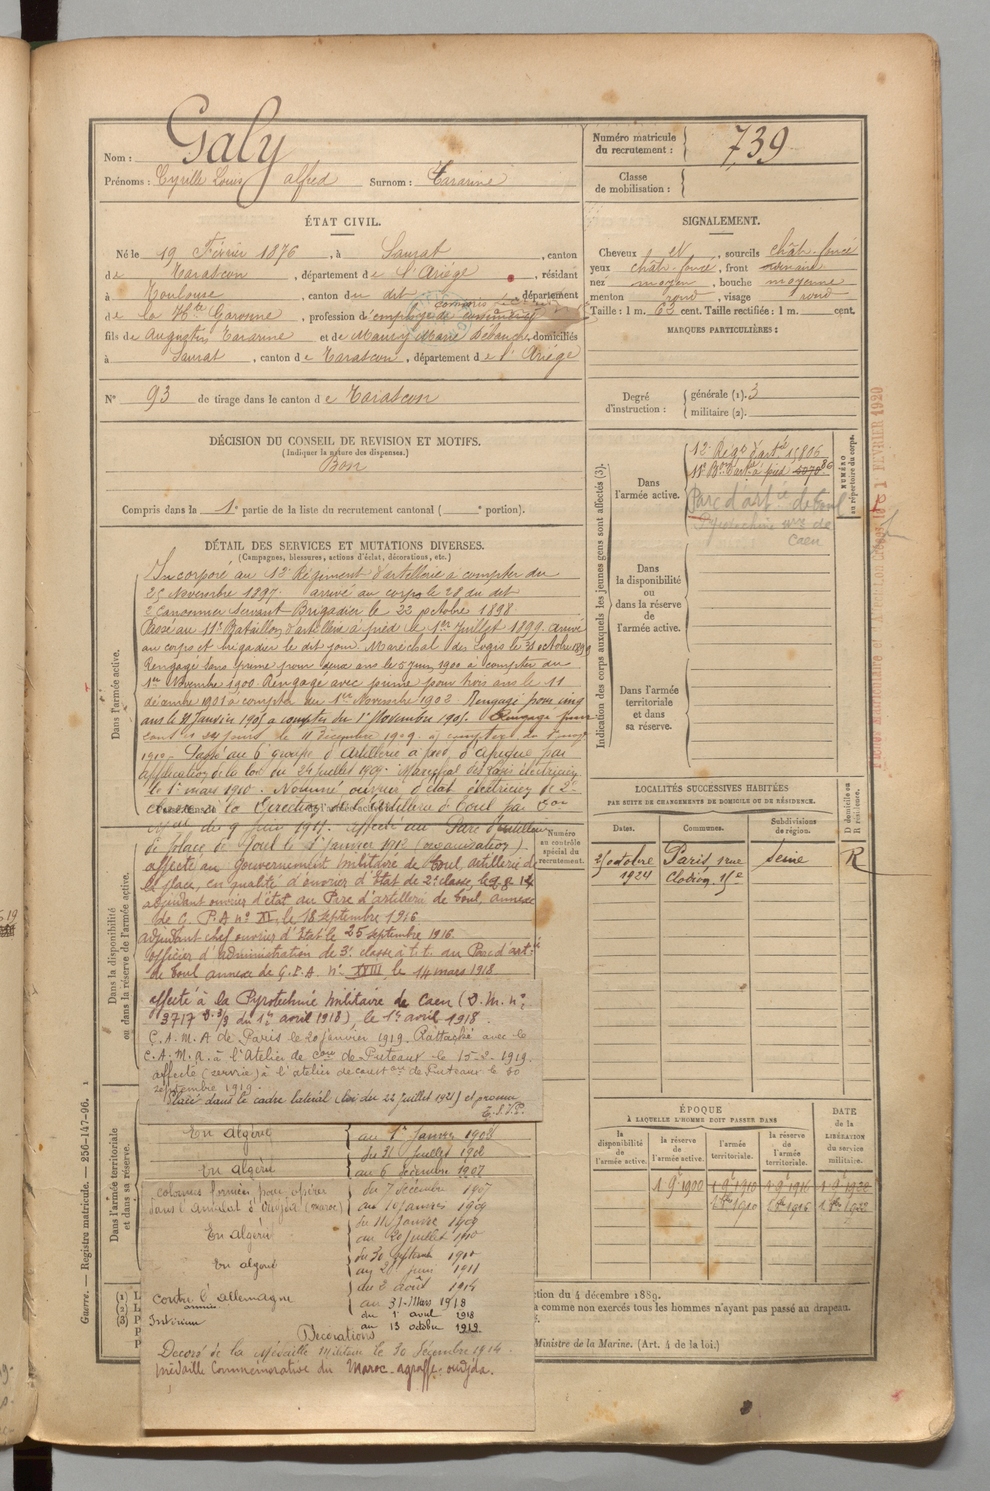 Nom : Galy
Prénoms : Cyrille Louis Alfred Surnom : Tararine
Numéro matricule du recrutement : 739
Classe de mobilisation :
ÉTAT CIVIL.
Né le 19 Février 1876, à Saurat, canton
de Tarascon, département de l'Ariège, résidant
à Toulouse, canton du dit, département
de la Hte Garonne, profession d'employé de
fils de Augustin Tararine et de Maury Marie Débauche, domiciliés
à Saurat, canton de Tarascon, département de l'Ariège
N° 93 de tirage dans le canton de Tarascon
SIGNALEMENT.
Cheveux et, sourcils chât-foncé
yeux chât-foncé, front ordinaire
nez moyen, bouche moyenne
menton rond, visage rond
Taille : 1 m. 63 cent. Taille rectifiée : 1 m. cent.
MARQUES PARTICULIÈRES :
Degré d'instruction : générale (1). 3
militaire (2).
DÉCISION DU CONSEIL DE REVISION ET MOTIFS.
(Indiquer la nature des dispenses.)
Bon
Compris dans la 1e partie de la liste du recrutement cantonal ( e portion).
DÉTAIL DES SERVICES ET MUTATIONS DIVERSES.
(Campagnes, blessures, actions d'éclat, décorations, etc.)
Dans l'armée active.
Incorporé au 12e Régiment d'artillerie à compter du
25 Novembre 1897. arrivé au corps le 28 du dit
2e Canonnier Servant Brigadier le 22 octobre 1898
Passé au 11e Bataillon d'artillerie à pied le 1er Juillet 1899. arrivé
au corps et brigadier le dit jour Maréchal des Logis le 31 octobre 1899
Rengagé sans prime pour deux ans le 5 juin 1900 à compter du
1er Novembre 1900. Rengagé avec prime pour trois ans le 11
décembre 1901 à compter du 1er Novembre 1902 Rengagé pour cinq
ans le 21 Janvier 1905 à compter du 1er Novembre 1905. Rengagé pour
le 11 décembre 1909 à compter du
1910. Passé au 6e groupe d'artillerie à pied d'afrique par
application de la loi du 24 juillet 1909. Maréchal des logis électricien
le 1er mars 1910. Nommé ouvrier d'état électricien de 2e
classe à la Direction d'artillerie de Toul par
du 9 juin 1911. affecté au Parc d'artillerie
Dans la disponibilité ou dans la réserve de l'armée active.
de place de Toul le 1er Janvier 1912 (organisation).
affecté au gouvernement militaire de Toul, artillerie de
la place, en qualité d'ouvrier d'Etat de 2e classe, le 9.8.14
adjudant ouvrier d'état au Parc d'artillerie de Toul, annexe
de G.P.A n° XV le 18 septembre 1916
adjudant chef ouvrier d'Etat le 25 septembre 1916
officier d'administration de 3e classe à t.t. au Parc d'artie
de Toul annexe de G.P.A. n° XVIII le 14 mars 1918
affecté à la Pyrotechnie militaire de Caen (D.M. n°
3717 D.3/3 du 1er avril 1918) le 1er avril 1918.
C.A.M.A de Paris le 20 janvier 1919. Rattaché avec le
C.A.M.A. à l'Atelier de Con de Puteaux le 15-2-1919.
affecté (service) à l'atelier de constion de Puteaux le 30
septembre 1919.
Placé dans le cadre latéral (loi du 22 juillet 1921) et promu
Dans l'armée territoriale et dans sa réserve.
En algérie
au 1er Janvier 1902
du 31 Juillet 1902
En algérie
au 6 décembre 1907
colonnes formées pour opérer
dans l'Annalat d'Oudjda (maroc)
du 7 décembre 1907
au 10 janvier 1909
En Algérie
du 11 Janvier 1909
au 20 juillet 1910
En algérie
du 30 septembre 1910
au 20 juin 1911
contre l'allemagne
du 2 août 1914
au 31 Mars 1918
Intérieur
du 1er avril 1918
au 13 octobre 1919
Decorations
Decoré de la Médaille Militaire le 30 décembre 1914.
Médaille Commémorative du Maroc agraffe oudjda.
Indication des corps auxquels les jeunes gens sont affectés (3).
NUMÉRO au répertoire du corps.
Dans l'armée active.
12e Régt d'artie 15806
11e Bon d'artie à pied
Parc d'artie de Toul
Pyrotechnie de
Caen
Dans la disponibilité ou dans la réserve de l'armée active.
Dans l'armée territoriale et dans sa réserve.
Numéro au contrôle spécial du recrutement.
LOCALITÉS SUCCESSIVES HABITÉES
PAR SUITE DE CHANGEMENTS DE DOMICILE OU DE RÉSIDENCE.
Dates. Communes. Subdivisions de région. D domicile ou R résidence.
25 octobre 1924 Paris, rue Seine R
ÉPOQUE
À LAQUELLE L'HOMME DOIT PASSER DANS
la disponibilité de l'armée active. la réserve de l'armée active. l'armée territoriale. la réserve de l'armée territoriale.
DATE de la LIBÉRATION du service militaire.
1 9e 1900 1 9e 1910 1 9e 1916 1 9e 1922
(1)
(2)
(3)
ction du 4 décembre 1889.
a comme non exercés tous les hommes n'ayant pas passé au drapeau.
Ministre de la Marine. (Art. 4 de la loi.)
Guerre. — Registre matricule. — 256-147-96.
1 FEVRIER 1920